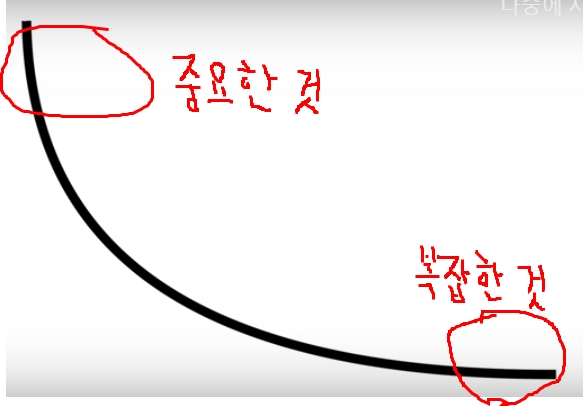 나중에
중요한 것
복잡한 것